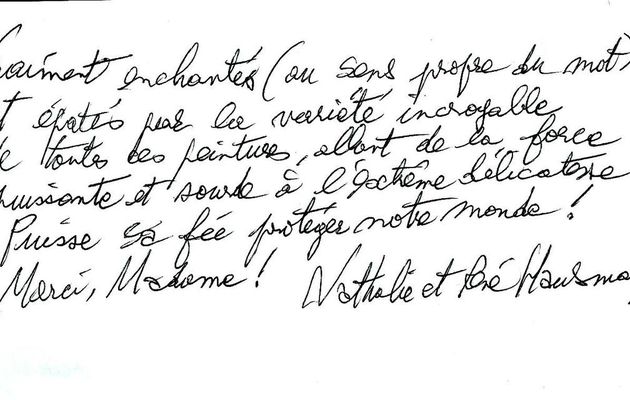 raiment enchantés (au sens propre du mot)
t épatés par la variété incroyable
e toutes ces peintures, allant de la force
puissante et sourde à l'extrême délicatesse
Puisse sa fée protéger notre monde !
Merci, Madame ! Nathalie et René Hausma